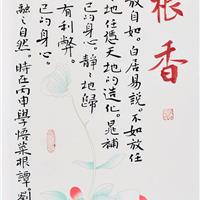 根香
放自如。白居易說。不如放任
地任憑天地的造化。晁補
己的身心。靜靜地歸
有利弊。
己的身心。
融之自然。時在丙申學悟菜根譚。劉